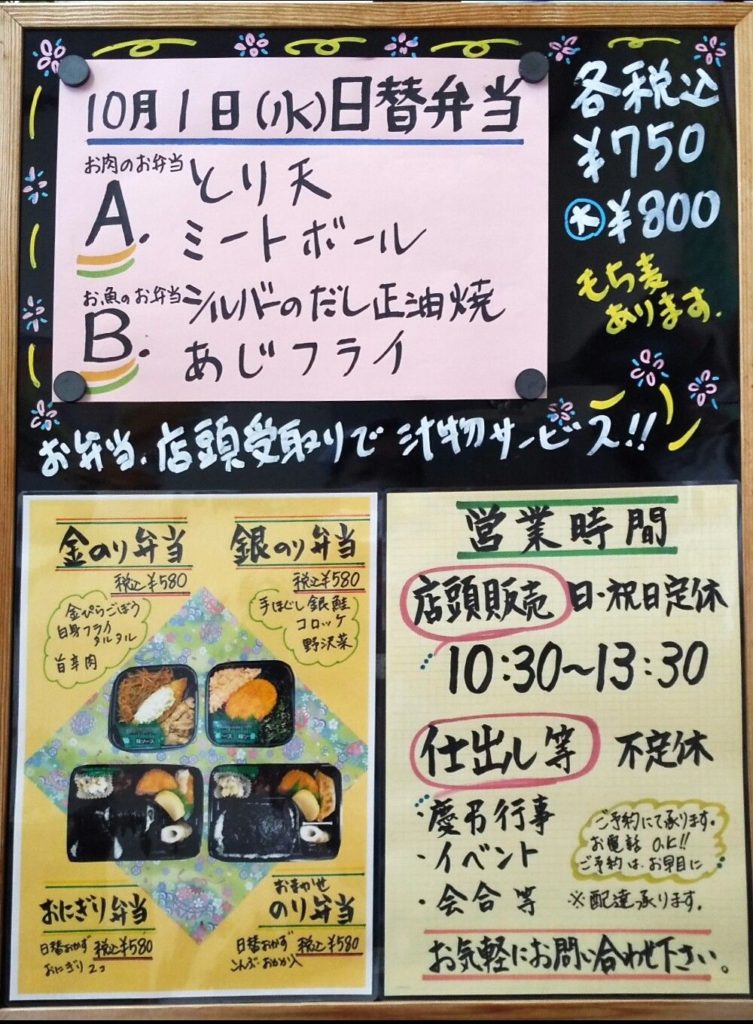 10月1日(水)日替弁当
お肉のお弁当
A. とり天
ミートボール
お魚のお弁当
B. シルバーのだし正油焼
あじフライ
各税込
¥750
大 ¥800
もち麦
あります.
お弁当.店頭受取りで 汁物サービス!!
金のり弁当
税込¥580
金ぴらごぼう
白身フライ
タルタル
旨辛肉
銀のり弁当
税込¥580
手ほぐし銀鮭
コロッケ
野沢菜
おにぎり弁当
日替おかず 税込¥580
おにぎり2コ
おまかせ
のり弁当
日替おかず 税込¥580
こんぶ・おかか入
営業時間
店頭販売 日・祝日定休
10:30~13:30
仕出し等 不定休
・慶弔行事
・イベント
・会合等
ご予約にて承ります.
お電話 O.K!!
ご予約は、お早目に
※配達承ります.
お気軽にお問い合わせ下さい。